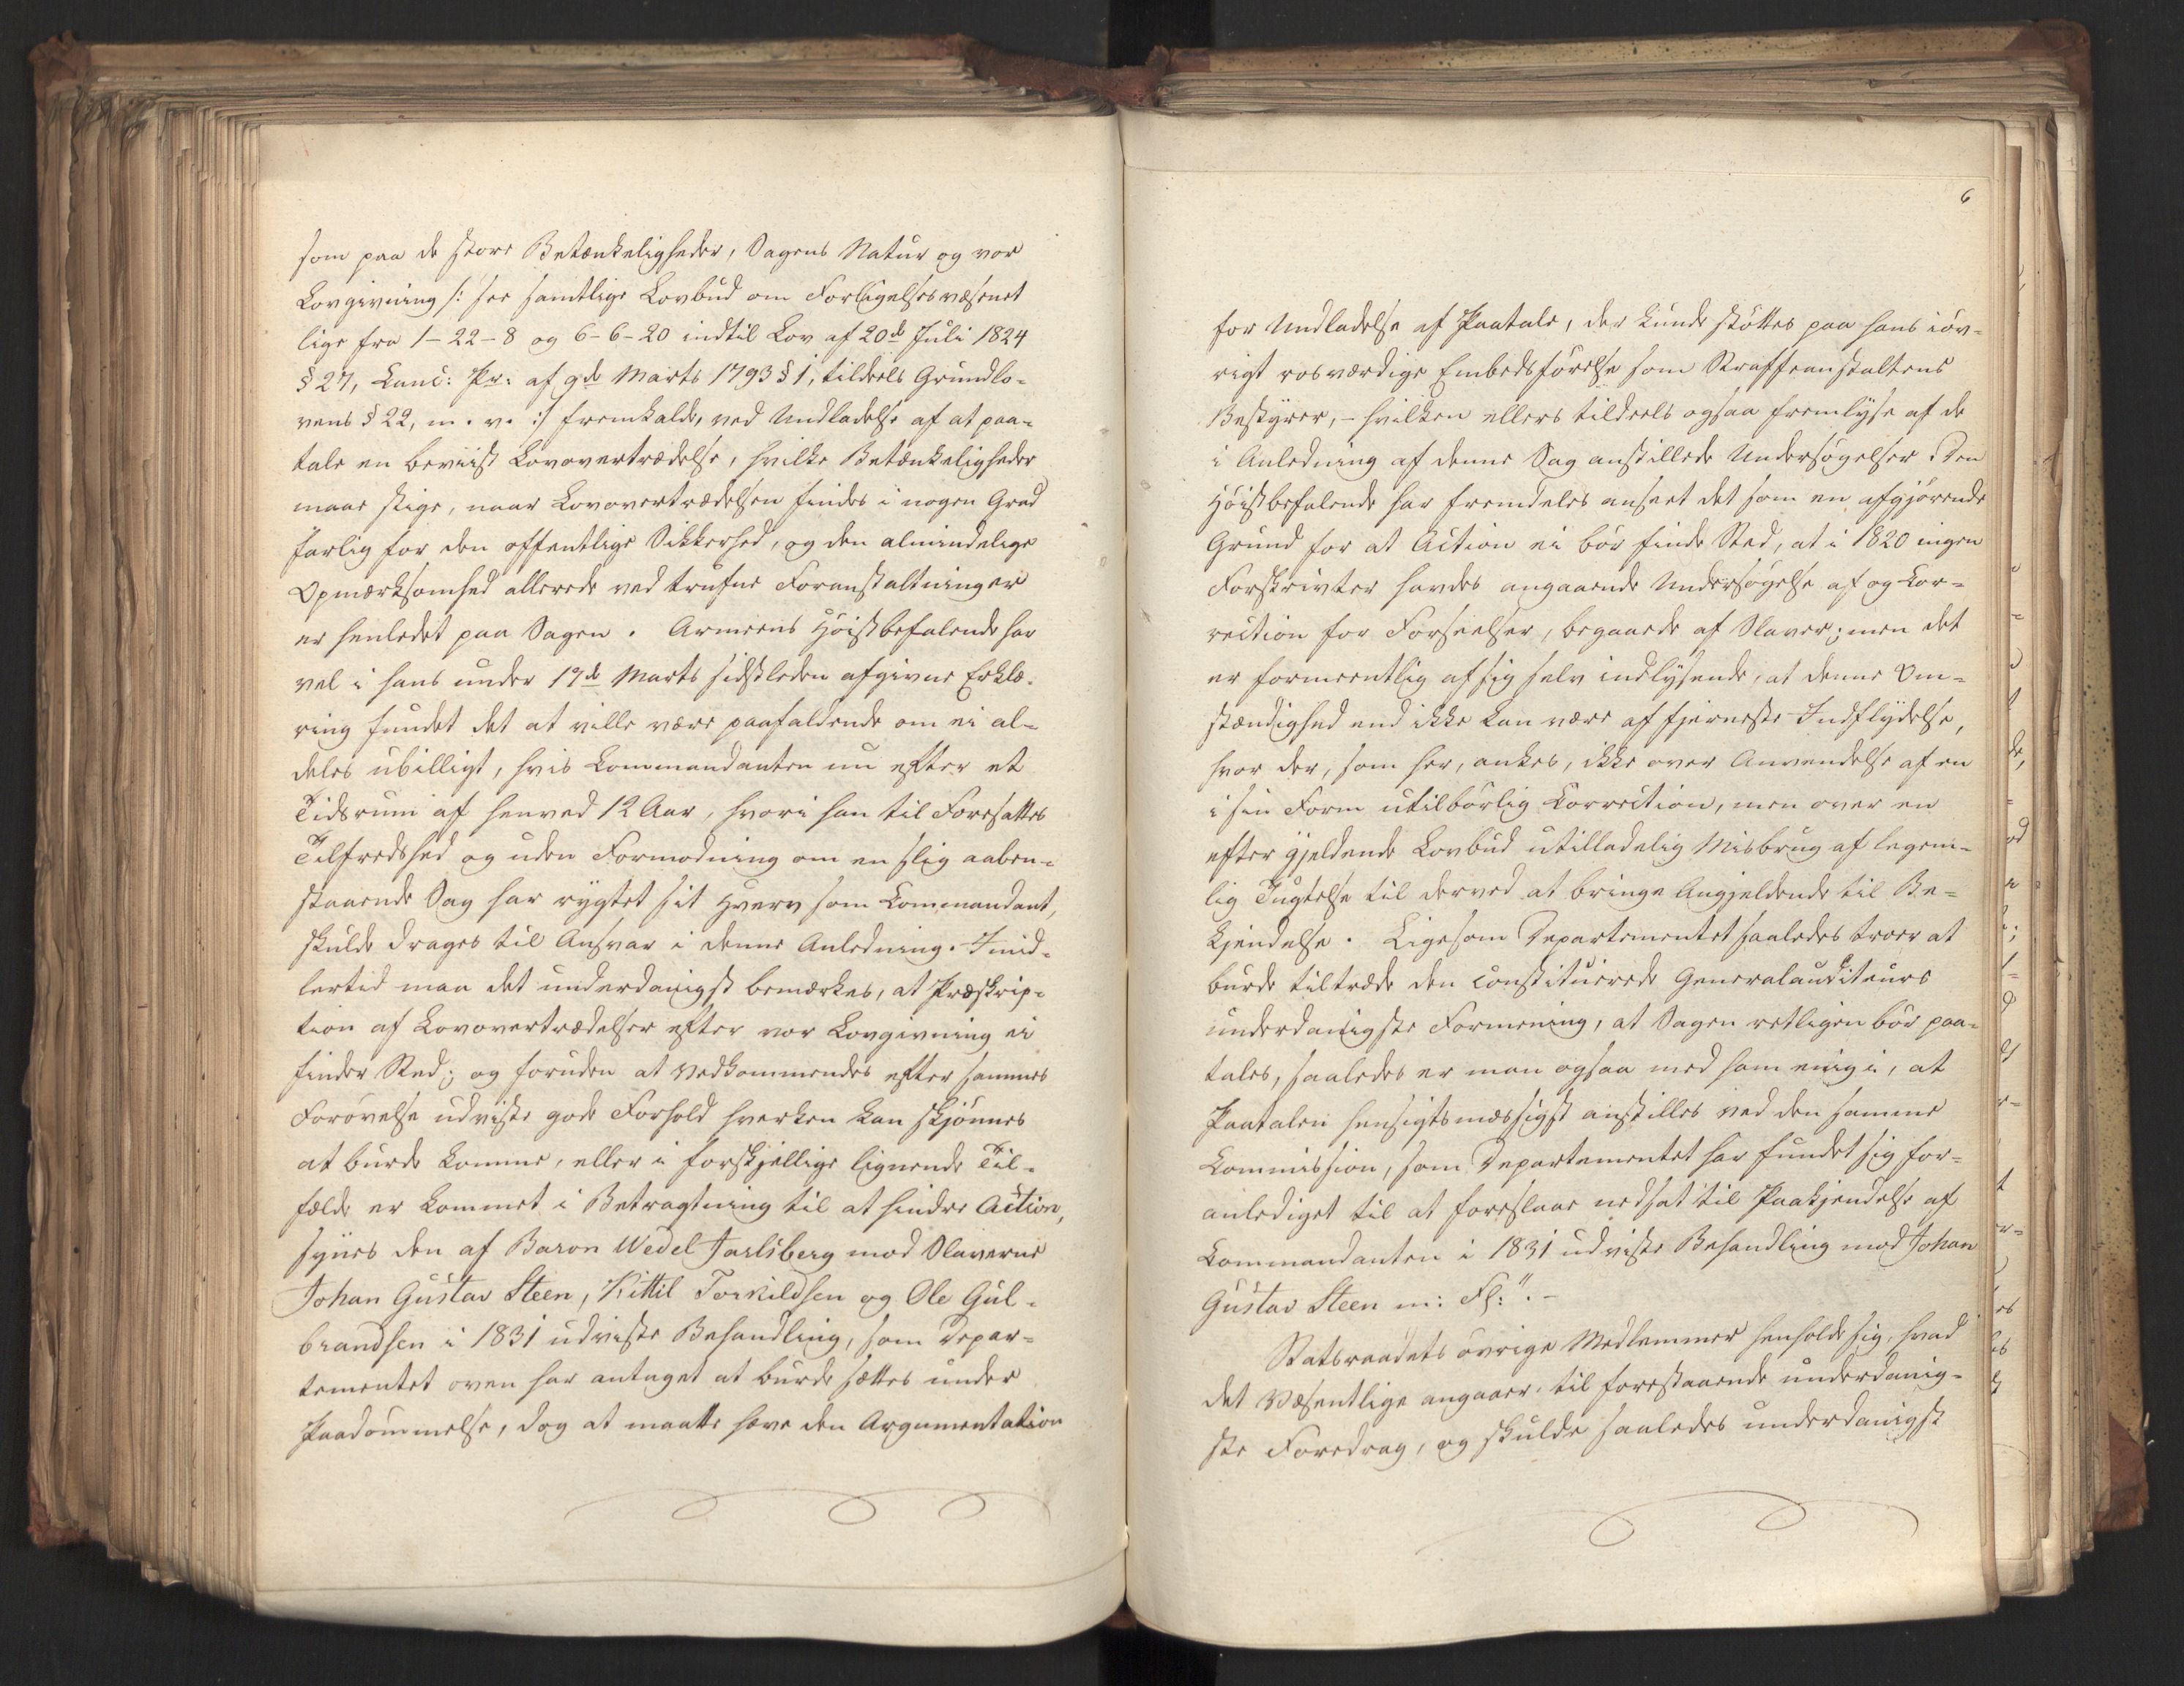 som paa de store Betænkeligheder, Sagens Natur og vor
Lovgivning /: see samtlige Lovbud om Forligelsesvæsenet
lige fra 1-22-8 og 6-6-20 indtil Lov af 20de Juli 1824
§ 27, Canc: Pr: af 9de Marts 1793 § 1, tildeels Grundlo-
vens § 22, m. v. :/ fremkalde, ved Undladelse af at paa-
tale en beviist Lovovertrædelse, hvilke Betænkeligheder
maae stige, naar Lovovertrædelsen findes i nogen Grad
farlig for den offentlige Sikkerhed, og den almindelige
Opmærksomhed allerede ved trufne Foranstaltninger
er henledet paa Sagen. Armeens Høistbefalende har
vel i hans under 17de Marts sidstleden afgivne Erklæ-
ring fundet det at ville være paafaldende om ei al-
deles ubilligt, hvis Commandanten nu efter et
Tidsrum af henved 12 Aar, hvori han til Foresattes
Tilfredshed og uden Formodning om en slig aaben-
staaende Sag har rygtet sit Hverv som Commandant,
skulde drages til Ansvar i denne Anledning. Imid-
lertid maa det underdanigst bemærkes, at Præskrip-
tion af Lovovertrædelser efter vor Lovgivning ei
finder Sted; og foruden at Vedkommendes efter sammes
Forøvelse udviste gode Forhold hverken kan skjønnes
at burde komme, eller i forskjellige lignende Til-
fælde er kommet i Betragtning til at hindre Action,
synes den af Baron Wedel Jarlsberg mod Slaverne
Johan Gustav Steen, Kittil Torkildsen og Ole Gul-
brandsen i 1831 udviste Behandling, som Depar-
tementet oven har antaget at burde sættes under
Paadømmelse, dog at maatte hæve den Argumentation
6
for Undladelse af Paatale, der kunde støttes paa hans iøv-
rigt rosværdige Embedsførelse som Straffeanstaltens
Bestyrer, - hvilken ellers tildeels ogsaa fremlyse af de
i Anledning af denne Sag anstillede Undersøgelser. Den
Høistbefalende har fremdeles anseet det som en afgjørende
Grund for at Action ei bør finde Sted, at i 1820 ingen
Forskrivter havdes angaaende Undersøgelse af og Cor-
rection for Forseelser, begaaede af Slaver; men det
er formeentlig af sig selv indlysende, at denne Om-
stændighed end ikke kan være af fjerneste Indflydelse,
hvor der, som her, ankes, ikke over Anvendelse af en
i sin Form utilbørlig Correction, men over en
efter gjeldende Lovbud utilladelig Misbrug af legem-
lig Tugtelse til derved at bringe Angjeldende til Be-
kjendelse. Ligesom Departementet saaledes troer at
burde tiltræde den constituerede Generalauditeurs
underdanigste Formening, at Sagen retligen bør paa-
tales, saaledes er man ogsaa med ham enig i, at
Paatalen hensigtsmæssigst anstilles ved den samme
Commission, som Departementet har fundet sig for-
anlediget til at foreslaae nedsat til Paakjendelse af
Commandanten i 1831 udviste Behandling mod Johan
Gustav Steen m: Fl:". -
Statsraadets øvrige Medlemmer henholde sig, hvad
det Væsentlige angaaer, til forestaaende underdanig-
ste Foredrag, og skulde saaledes underdanigst